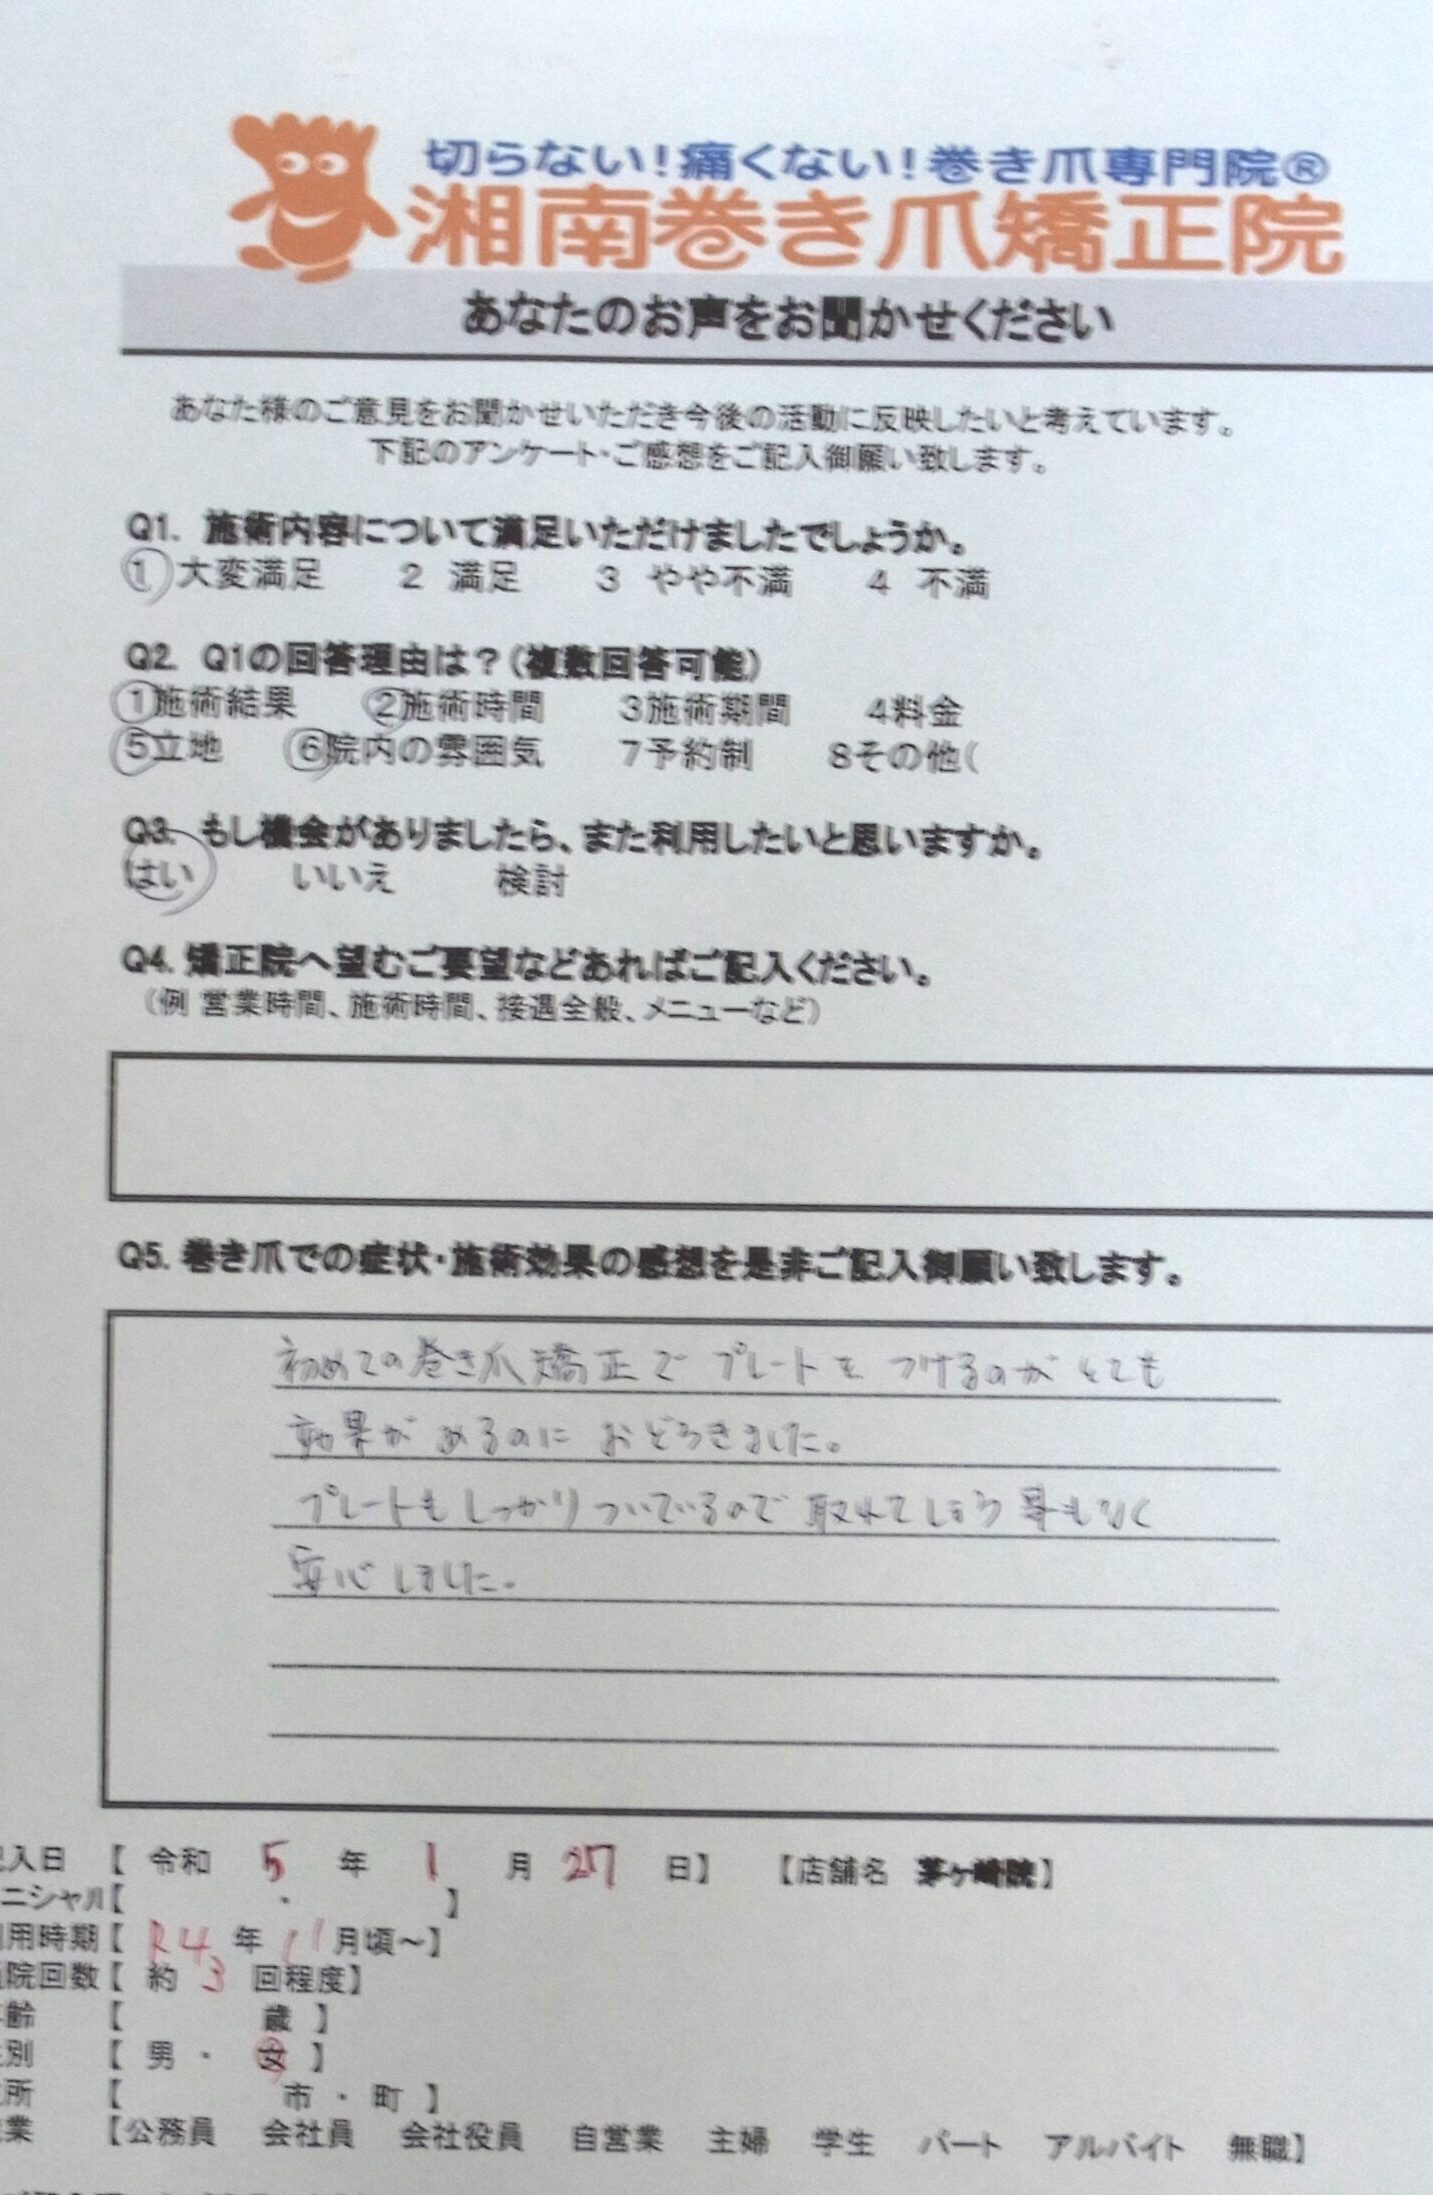 切らない！痛くない！巻き爪専門院®
湘南巻き爪矯正院
あなたのお声をお聞かせください
あなた様のご意見をお聞かせいただき今後の活動に反映したいと考えています。
下記のアンケート・ご感想をご記入御願い致します。
Q1. 施術内容について満足いただけましたでしょうか。
1 大変満足 2 満足 3 やや不満 4 不満
Q2. Q1の回答理由は？（複数回答可能）
1施術結果 2施術時間 3施術期間 4料金
5立地 6院内の雰囲気 7予約制 8その他（
Q3. もし機会がありましたら、また利用したいと思いますか。
はい いいえ 検討
Q4. 矯正院へ望むご要望などあればご記入ください。
（例 営業時間、施術時間、接遇全般、メニューなど）
Q5. 巻き爪での症状・施術効果の感想を是非ご記入御願い致します。
初めての巻き爪矯正で プレートを つけるのが とても
効果が めるのに おどろきました。
プレートもしっかりついているので 取れてしまう 事もなく
安心しました。
記入日 【 令和 5 年 1 月 27 日】 【店舗名 茅ケ崎院】
ニシャル【 ・ 】
用時期【 R4 年 11 月頃～】
院回数【 約 3 回程度】
齢 【 歳 】
別 【 男 ・ 女 】
所 【 市 ・ 町 】
業 【公務員 会社員 会社役員 自営業 主婦 学生 パート アルバイト 無職】